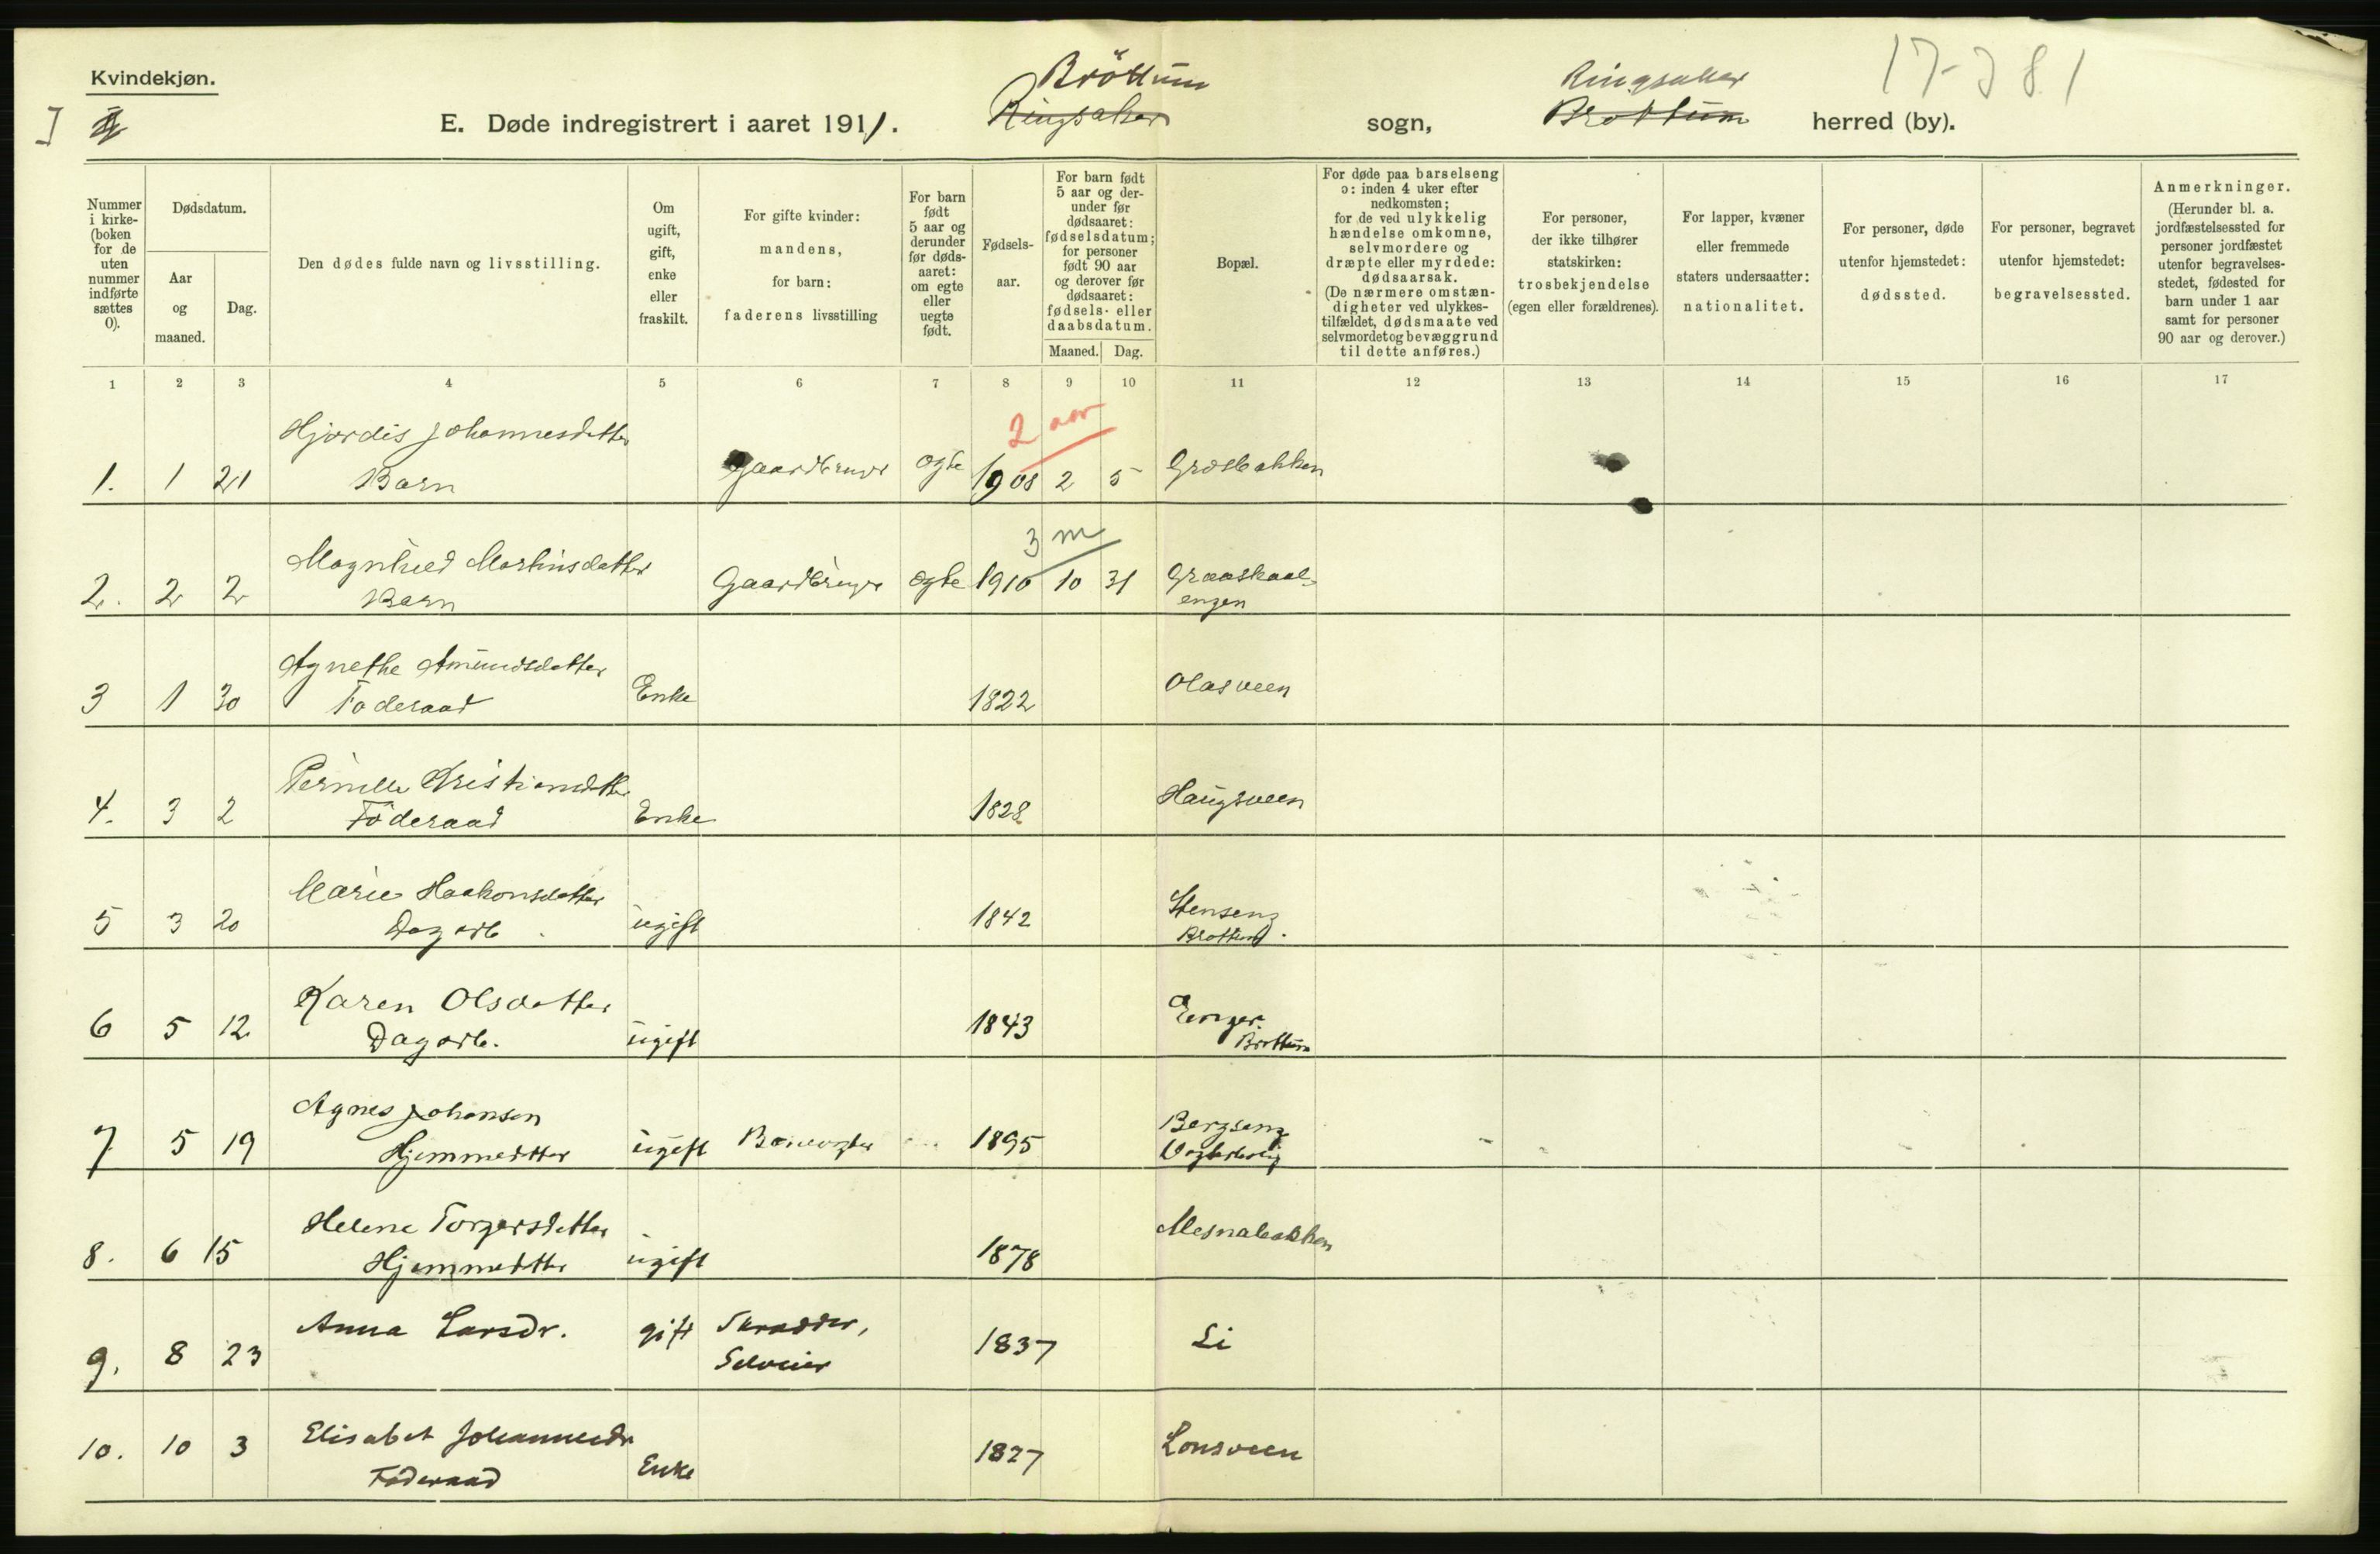 Kvindekjøn.
E. Døde indregistrert i aaret 1911. Brøttum Ringsaker sogn, Ringsaker Brøttum herred (by).
17-381
Nummer i kirke-(boken for de uten nummer indførte sættes 0).
Dødsdatum.
Aar og maaned.
Dag.
Den dødes fulde navn og livsstilling.
Om ugift, gift, enke eller fraskilt.
For gifte kvinder: mandens, for barn: faderens livsstilling
For barn født 5 aar og derunder før døds-aaret: om egte eller uegte født.
Fødsels-aar.
For barn født 5 aar og der-under før dødsaaret: fødselsdatum; for personer født 90 aar og derover før dødsaaret: fødsels- eller daabsdatum.
Maaned. Dag.
Bopæl.
For døde paa barselseng ɔ: inden 4 uker efter nedkomsten; for de ved ulykkelig hændelse omkomne, selvmordere og dræpte eller myrdede: dødsaarsak. (De nærmere omstæn-digheter ved ulykkes-tilfældet, dødsmaate ved selvmordet og bevæggrund til dette anføres.)
For personer, der ikke tilhører statskirken: trosbekjendelse (egen eller forældrenes).
For lapper, kvæner eller fremmede staters undersaatter: nationalitet.
For personer, døde utenfor hjemstedet: dødssted.
For personer, begravet utenfor hjemstedet: begravelsessted.
Anmerkninger. (Herunder bl. a. jordfæstelsessted for personer jordfæstet utenfor begravelses-stedet, fødested for barn under 1 aar samt for personer 90 aar og derover.)
1 2 3 4 5 6 7 8 9 10 11 12 13 14 15 16 17
Hjørdis Johannesdatter 2 aar
1. 1 21 Barn Gaardbruger egte 1908 2 5 Græsbakken
Magnhild Martinsdatter 3 m
2. 2 2 Barn Gaardbruger egte 1910 10 31 Graaskaal-
engen
Agnethe Amundsdatter
3 1 30 Føderaad Enke 1822 Olasveen
Pernille Kristiansdtter
4. 3 2 Føderaad Enke 1828 Haugsveen
Marie Haakonsdatter
5 3 20 Dagarb. ugift 1842 Stenseng
Brøttum.
Karen Olsdatter
6 5 12 Dagarb. ugift 1843 Enger.
Brøttum
Agnes Johansen
7 5 19 Hjemmedtter ugift Banevogter 1895 Bergseng
Vogterbolig
Helene Torgersdatter
8. 6 15 Hjemmedtter ugift 1878 Mesnabakken
Anna Larsdr. gift Skrædder,
9. 8 23 Selveier 1837 Li
Elisabet Johannesdr
10. 10 3 Føderaad Enke 1827 Lonsveen